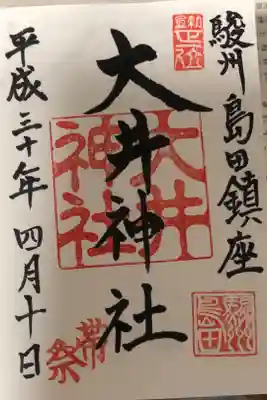 駿州 島田鎮座
大井神社
大井
神社
帯
祭
平成三十年 四月十日